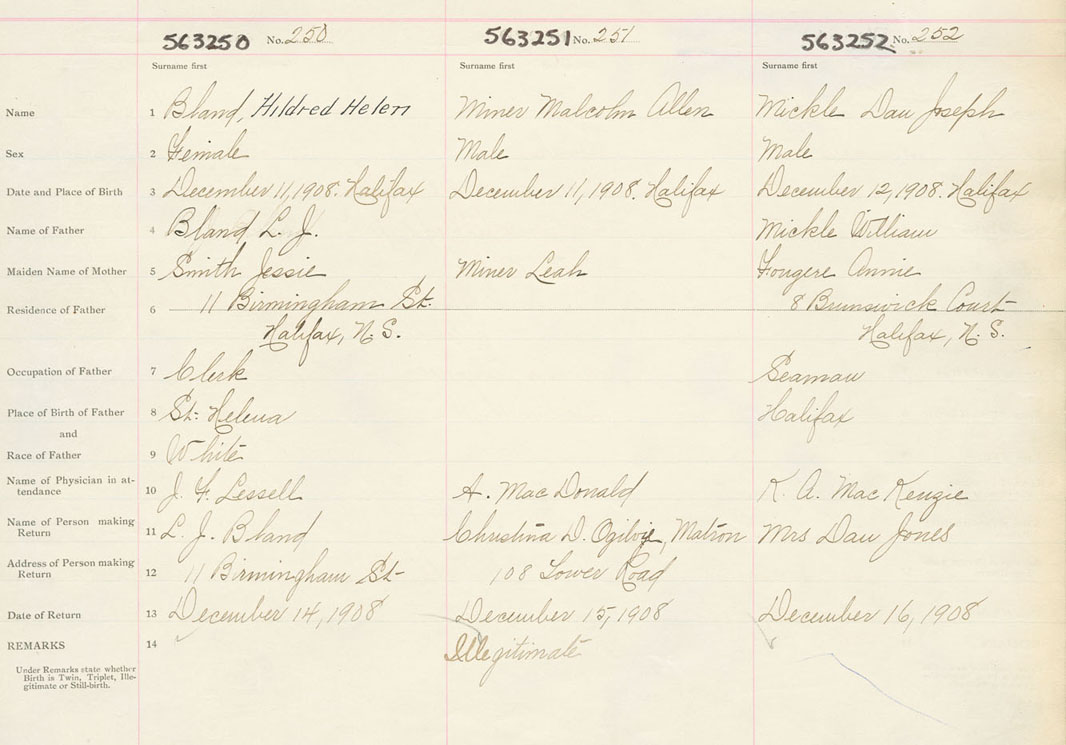 563250 No. 250 563251 No. 251 563252 No. 252
Surname first Surname first Surname first
Name 1 Bland, Hildred Helen Miner Malcolm Allen Mickle Dan Joseph
Sex 2 Female Male Male
Date and Place of Birth 3 December 11, 1908. Halifax December 11, 1908. Halifax December 12, 1908. Halifax
Name of Father 4 Bland, L. J. Mickle William
Maiden Name of Mother 5 Smith Jessie Miner Leah Fougere Annie
Residence of Father 6 11 Birmingham St. 8 Brunswick Court
Halifax, N. S. Halifax, N. S.
Occupation of Father 7 Clerk Seaman
Place of Birth of Father 8 St. Helena Halifax
and
Race of Father 9 White
Name of Physician in at-
tendance 10 J. F. Lessell A. MacDonald K. A. MacKenzie
Name of Person making
Return 11 L. J. Bland Christina D. Ogilvie, Matron Mrs Dan Jones
Address of Person making
Return 12 11 Birmingham St. 108 Lower Road
Date of Return 13 December 14, 1908 December 15, 1908 December 16, 1908
REMARKS 14 Illegitimate
Under Remarks state whether
Birth is Twin, Triplet, Ille-
gitimate or Still-birth.